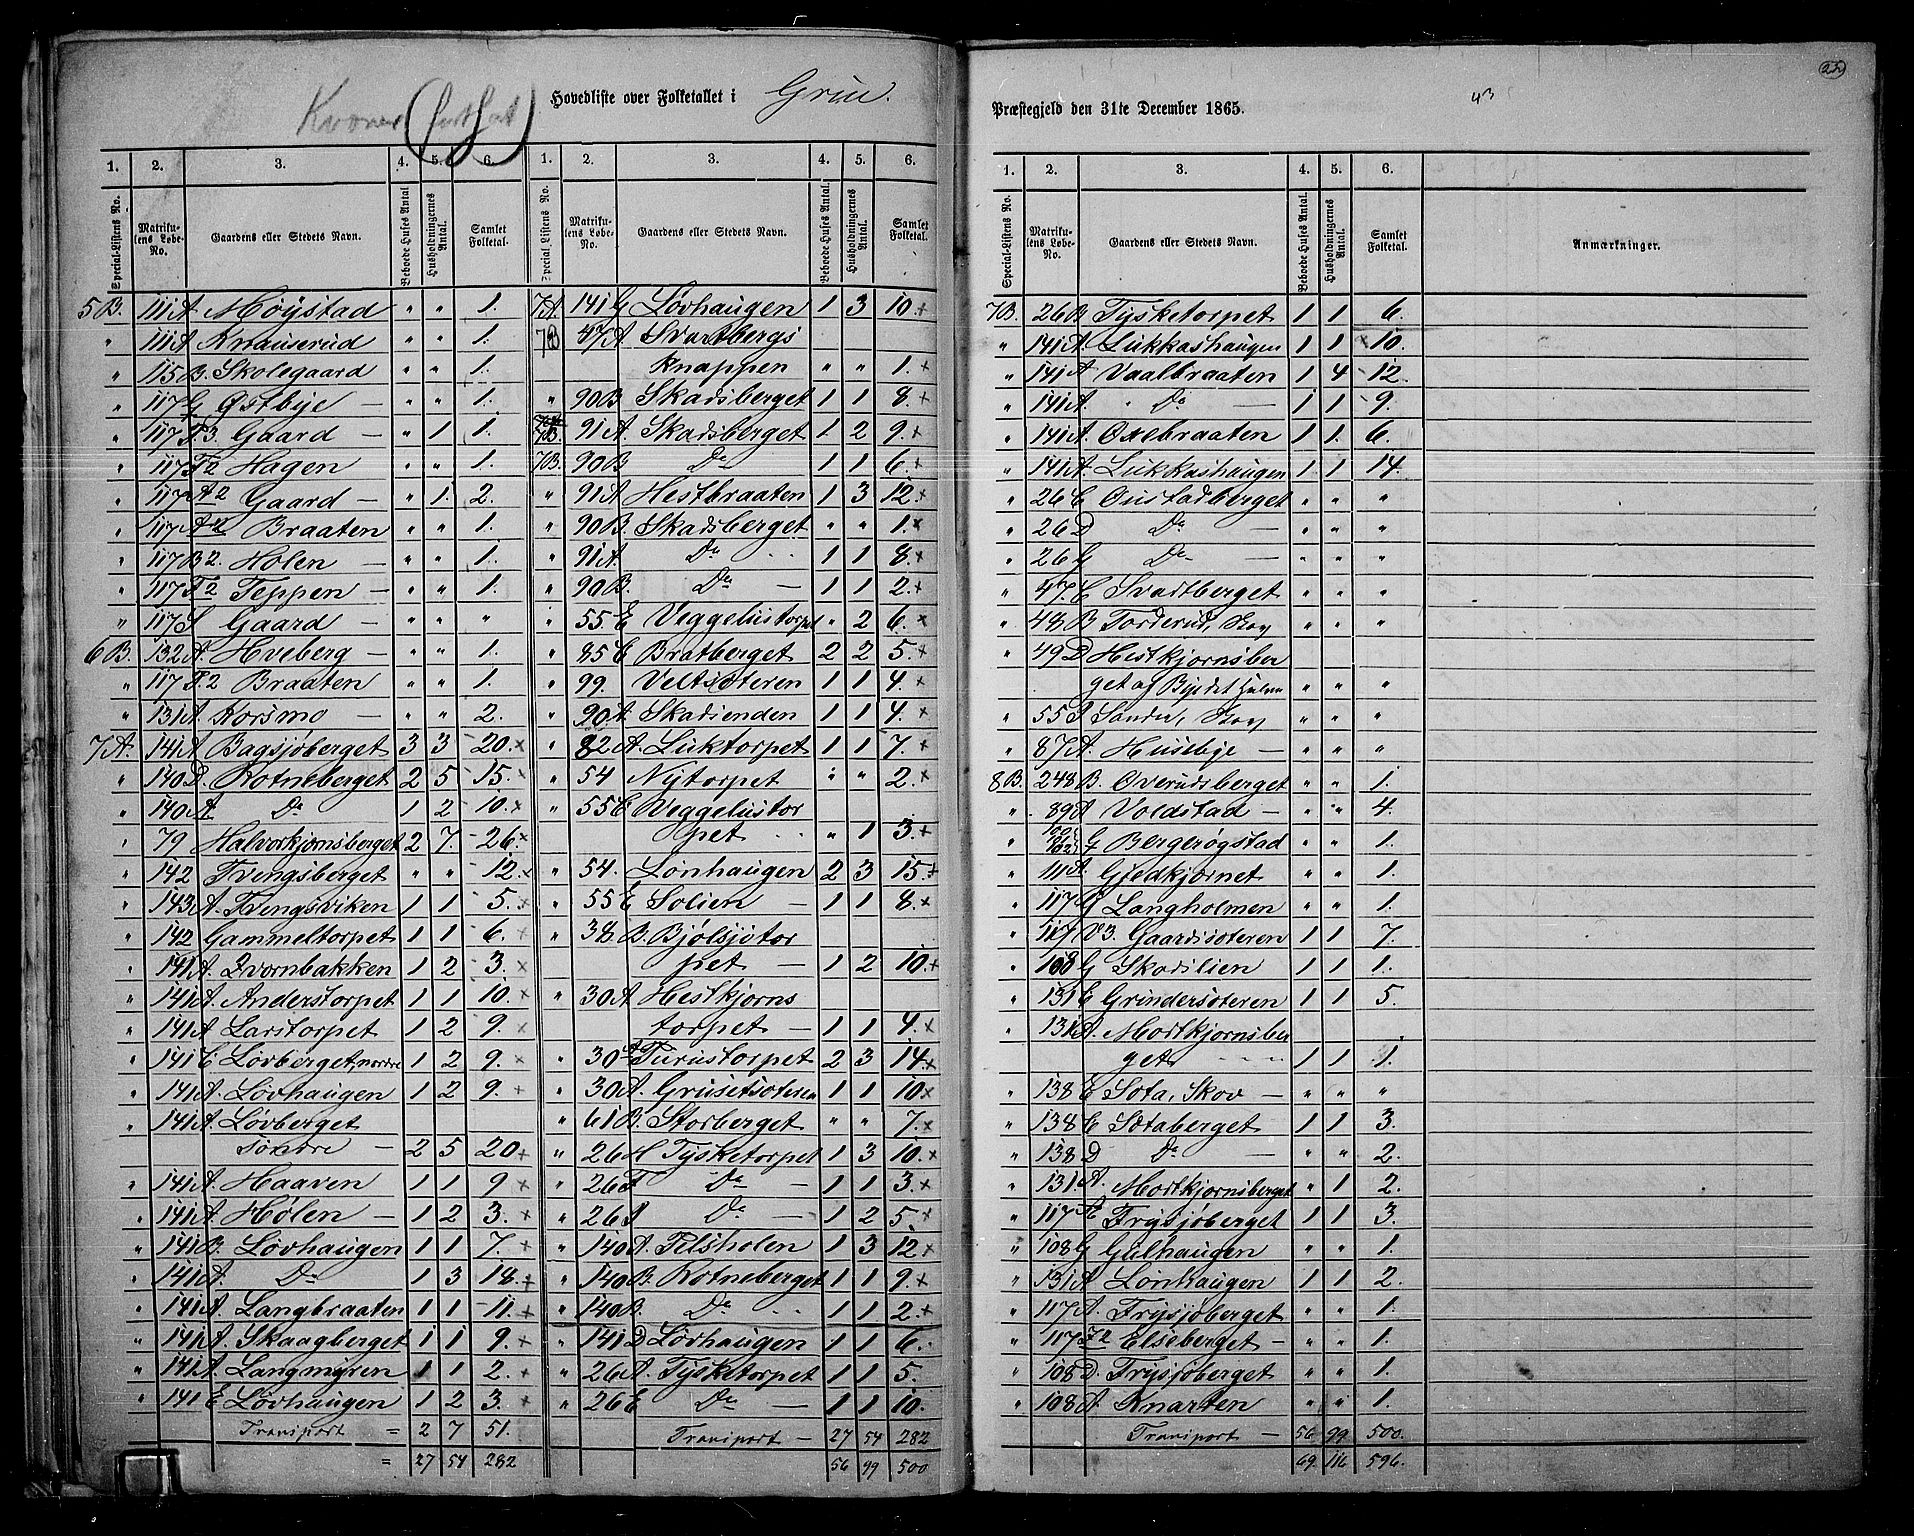 22
43
Kvoner (fortsat)
Hovedliste over Folketallet i Grue. Præstegjeld den 31te December 1865.
1. 2. 3. 4. 5. 6. 1. 2. 3. 4. 5. 6.
Special-Listens No. Matrikulens Løbe-No. Gaardens eller Stedets Navn. Beboede Huses Antal Husholdningernes Antal. Samlet Folketal. Special-Listens No. Matrikulens Løbe-No. Gaardens eller Stedets Navn. Beboede Huses Antal. Husholdningernes Antal. Samlet Folketal.
5 B. 111 A Møystad " " 1.
" 111 A Knauserud " " 1.
" 115 B. Skolegaard " " 1.
" 117 G Østbye — " " 1.
" 117 F3 Gaard — " 1 1.
" 117 F2 Hagen " " 1.
" 117 A2 Gaard — " 1. 2.
" 117 A2 Braaten " " 1.
" 117 B2. Holen — " " 1.
" 117 F2 Teppen — " " 1.
" 117 S Gaard — " " "
6 B. 132 A. Hveberg — " " 1.
" 117 F.2 Braaten " " 1.
" 131 A. Korsmo — " " 2.
7 A. 141 A Bagsjøberget 3 3 20. x
" 140 D. Rotneberget 2 5 15. x
" 140 A Do 1 2 10. x
" 79 Halvorkjernsberget 2 7. 26 x
" 142 Tvengsberget " " 12. x
" 143 A. Tvengsviken 1 1 5. x
" 142 Gammeltorpet 1 1 6. x
" 141 A. Qvornbakken 1 2 3. x
" 141 A. Anderstorpet 1 1 10. x
" 141 A Larstorpet 1 2 9. x
" 141 C Løvberget, nordre 1 2 9. x
" 141 A. Løvhaugen 1 2 9. x
" 141 A. Løvberget
søndre — 2 5 20 x
" 141 A Haaven 1 1 9 x
" 141 A. Hølen — 1 2 3. x
" 141 B. Løvhaugen 1 1 7. x
" 141 A. Do 1 3 18. x
" 141 A. Langbraaten 1 1 11. x
" 141 A. Skaagberget 1 1 9. x
" 141 A. Langmyren 1 1 2. x
" 141 E Løvhaugen 1 2 3. x
Transport = 2 7 51.
= 27 54 282
7 A. 141 G Løvhaugen 1 3 10. x
7 B 47 A Svartbergs
knappen " " 1. x
" 90 B Skadsberget 1 1 8. x
7 B. 91 A. Skadsberget 1. 2 9. x
7 B. 90 B Do 1 1 6. x
" 91 A. Hestbraaten 1 3 12. x
" 90 B. Skadsberget " " 1. x
" 91 A. Do 1 1 8. x
" 90 B. Do — 1 1 2. x
" 55 E Veggelistorpet " 2 6. x
" 85 C Bratberget 2 2 5. x
" 99. Veltsøteren 1 1 4. x
" 90 A. Skadienden 1 1 4. x
" 82 A. Luktorpet 1 1 7. x
" 54 Nytorpet " " 2. x
" 55 E Veggelistor
pet — " 1 3. x
" 54. Lønhaugen 2 3 15. x
" 55 E Solien — 1 1 8. x
" 38. B. Bjølsjøtor
pet — 1 2 10. x
" 30 A Hestkjerns
torpet — 1 1 4. x
" 30 A Purustorpet 2 3 14. x
" 30 A. Grusetsøteren 1 1 10 x
" 61 B. Storberget " " 7. x
" 26 H Tysketorpet 1 3 10. x
" 26 F Do — 1 1 3. x
" 26 I Do — 1 2 5. x
" 140 A. Felsholen 1 3 12 x
" 140 B. Rotneberget 1 1 9. x
" 140 B. Do 1 1 2. x
" 141 D Løvhaugen 1 1 6.
" 26 A. Tysketorpet 1 1 5.
" 26 E Do — 1 1 10.
Transport — 27 54 282
56 99 500
1. 2. 3. 4. 5. 6.
Special-Listens No. Matrikulens Løbe-No. Gaardens eller Stedets Navn. Beboede Huses Antal. Husholdningernes Antal. Samlet Folketal. Anmærkninger.
7 B. 26 B Tysketorpet 1 1 6.
" 141 A. Lukkashaugen 1 1 x 10.
" 141 A Vaalbraaten 1 4 12.
" 141 A. " Do — 1 1 9.
" 141 A. Oxebraaten 1 1. 6.
" 141 A. Lukkashaugen 1 1 14.
" 26 C Oustadberget " " "
" 26 D Do — " " "
" 26 G Do — " " "
" 47. C Svartberget " " "
" 48 B Torderud, Skov " " "
" 49 D Hestkjernsber
get af Bye det halve " " "
" 55 I Sander, Skov " " "
" 87 A. Husebye — " " "
8 B. 248 B. Overudsberget " " 1.
" 89 A Voldstad — " " 4.
" G Bergerøgstad " " 1.
" 111 A. Gjedkjernet " " 1.
" 117 G Langholmen " " 1.
" 117 V3. Gaardsøteren 1 1 7.
" 108 G Skasilien 1 1 1.
" 131 E Grindersøteren 1 1 5.
" 131 A. Mortkjernsber
get 1 1 1.
" 138 E Sota, Skov — " " "
" 138 C Søtaberget 1 1 3.
" 138 D Do — " " 2.
" 131. A. Mortkjernsberget " 1 2.
" 117 E Frysjøberget 1 1 3.
" 108 G Gulhaugen " " 1.
" 131 A Lønhaugen 1 1 2.
" 117 A. Frysjøberget " " 1.
" 117 F2 Elseberget — " " 1.
" 108 D. Frysjøberget " " 1.
" 108 A. Knarten " " 1.
Transport — 56 99 500.
69. 116 596.